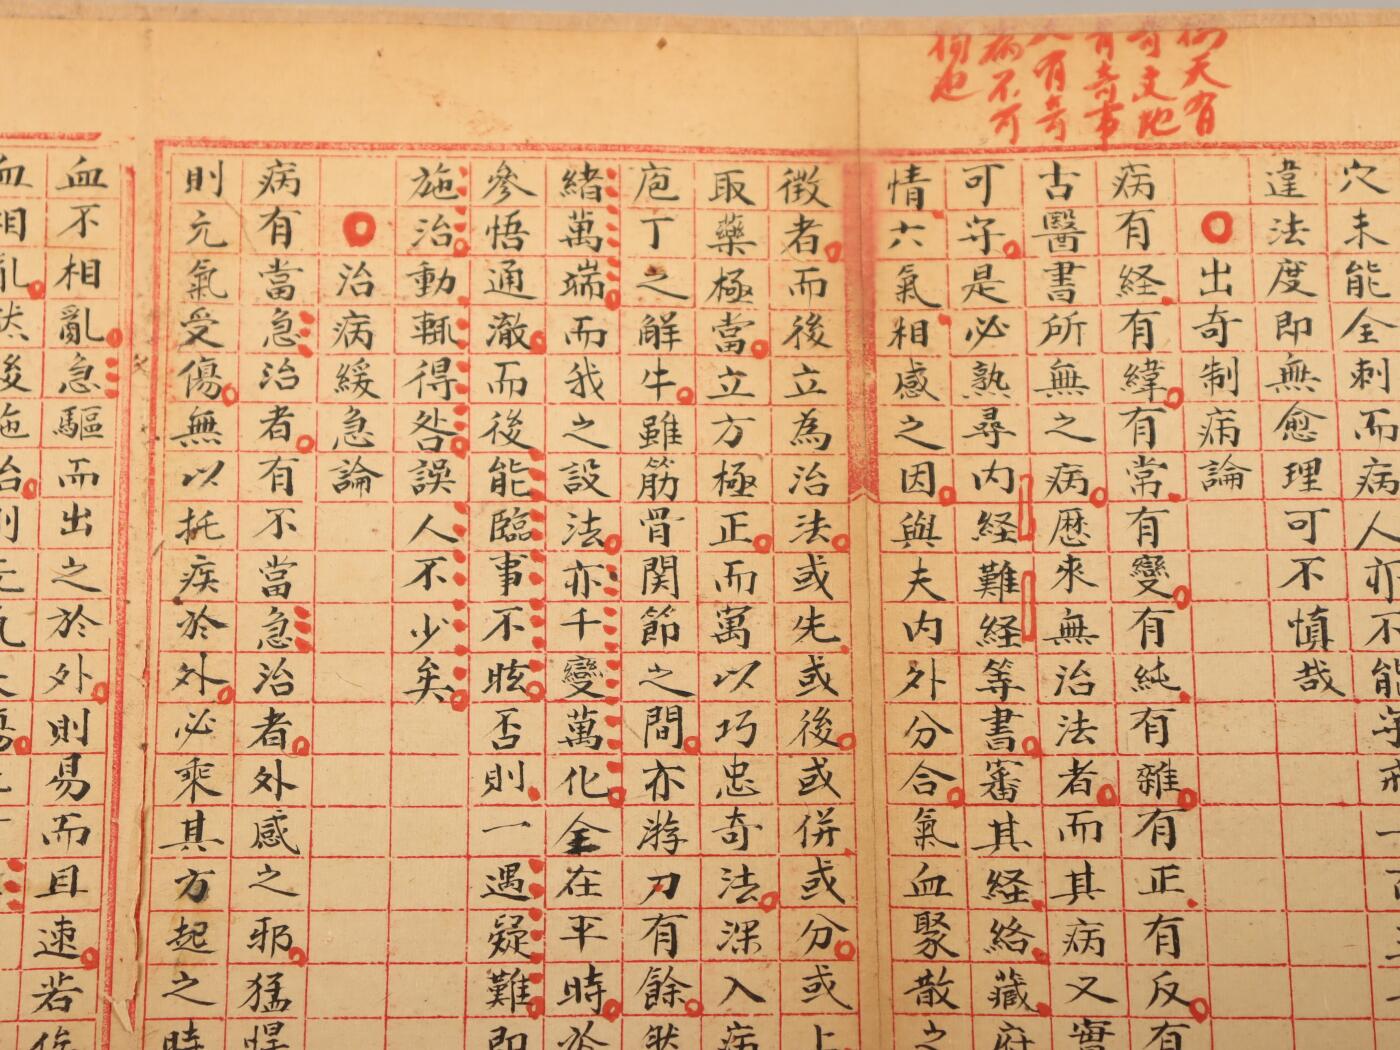 天有
奇文地
有奇事
人有奇
病不可
拘也
穴未能全刺而病人亦不能守戒一
違法度即無愈理可不慎哉
出奇制病論
病有経有緯有常有變有純有雜有正有反有
古醫書所無之病歴來無治法者而其病又實
可守是必熟尋内経難経等書審其経絡藏府
情六氣相感之因與夫内外分合氣血聚散之
徴者而後立為治法或先或後或併或分或上
取藥極當立方極正而萬以巧忠奇法深入病
庖丁之解牛雖筋骨関節之間亦游刀有餘然
緒萬端而我之設法亦千變萬化全在平時於
參悟通澈而後能臨事不眩否則一遇疑難即
施治動輒得咎誤人不少矣
治病緩急論
病有當急治者有不當急治者外感之邪猛悍
則元氣受傷無以托疾於外必乘其方起之時
血不相亂急驅而出之於外則易而且速若俟
血相亂然後施治則元氣大傷